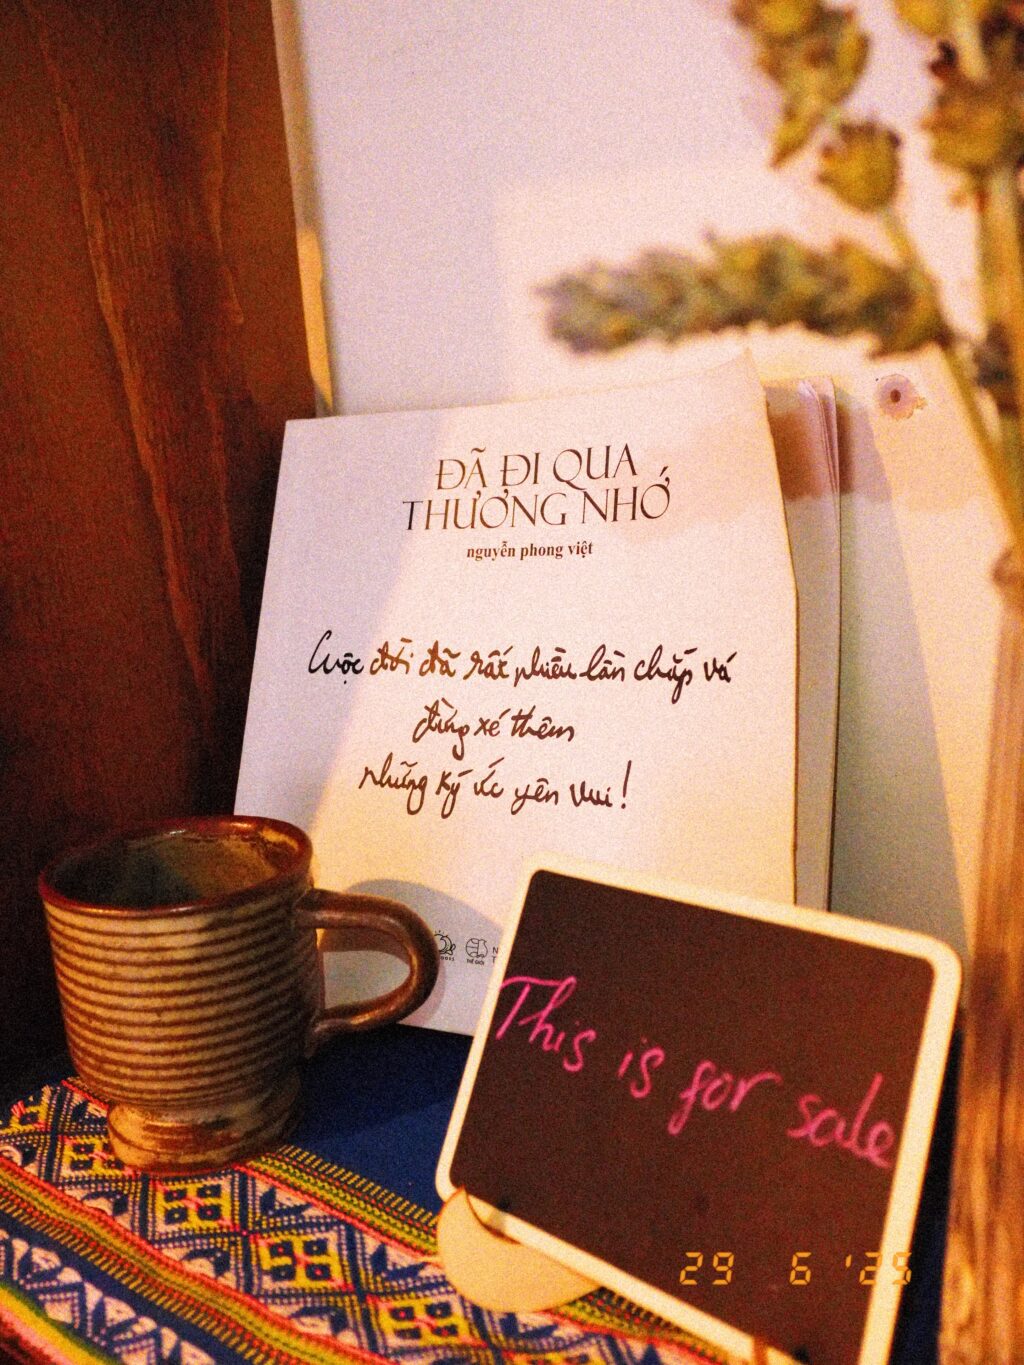 ĐÃ ĐI QUA
THƯƠNG NHỚ
nguyễn phong việt
Cuộc đời đã rất nhiều lần chắp vá
đừng xé thêm
những ký ức yên vui!
THẾ GIỚI
This is for sale
29 6 '25